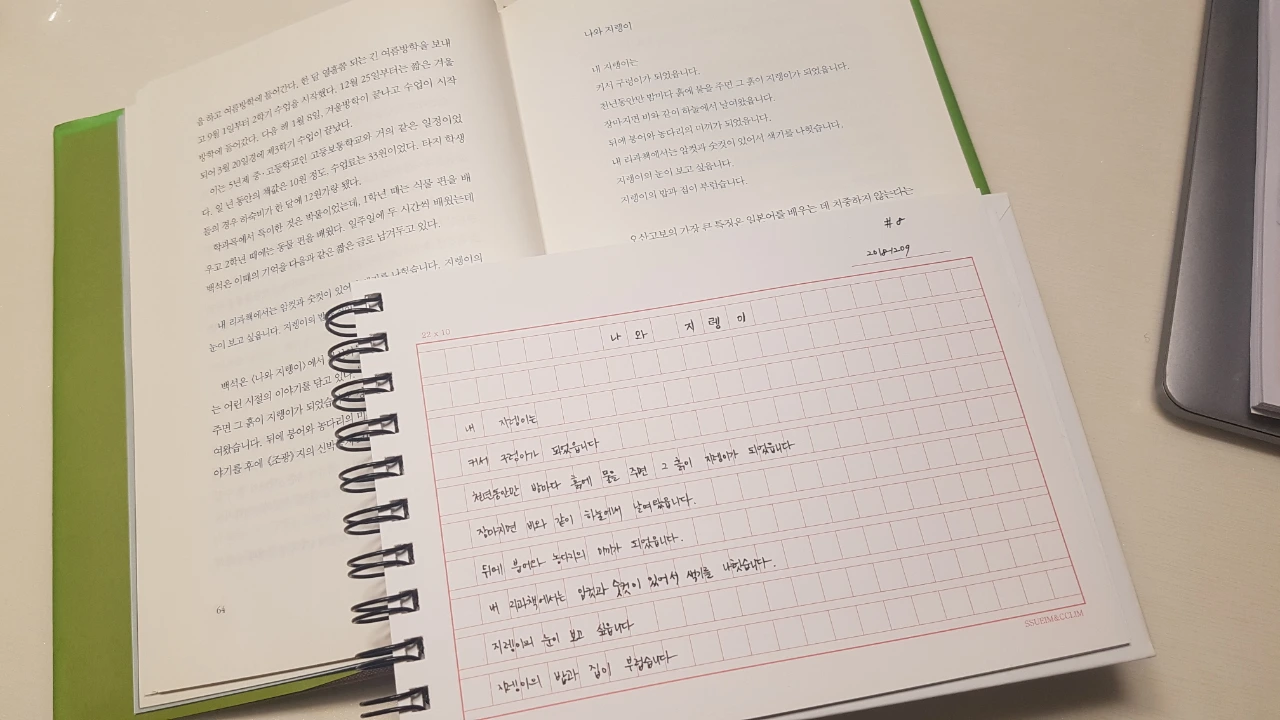 을 하고 여름방학에 들어간다. 한 달 열흘쯤 되는 긴 여름방학을 보내
고 9월 1일부터 2학기 수업을 시작했다. 12월 25일부터는 짧은 겨울
방학에 들어갔다. 다음 해 1월 8일, 겨울방학이 끝나고 수업이 시작
되어 3월 20일경에 제3학기 수업이 끝났다.
이는 5년제 중·고등학교인 고등보통학교와 거의 같은 일정이었
다. 일 년 동안의 책값은 10원 정도, 수업료는 33원이었다. 타지 학생
들의 경우 하숙비가 한 달에 12원가량 됐다.
학과목에서 특이한 것은 박물이었는데, 1학년 때는 식물 편을 배
우고 2학년 때에는 동물 편을 배웠다. 일주일에 두 시간씩 배웠는데
백석은 이때의 기억을 다음과 같은 짧은 글로 남겨두고 있다.
내 리과책에서는 암컷과 숫컷이 있어 를 나헛습니다. 지렝이의
눈이 보고 싶읍니다. 지렝이의
백석은 〈나와 지렝이〉에서
는 어린 시절의 이야기를 담고 있다.
주면 그 흙이 지렝이가 되었습
여왔습니다. 뒤에 붕어와 농다리의 미
야기를 후에 《조광》 지의 신박
64
나와 지렝이
내 지렝이는
커서 구렁이가 되었읍니다.
천년동안만 밤마다 흙에 물을 주면 그 흙이 지렝이가 되었읍니다.
장마지면 비와 같이 하늘에서 날여왔읍니다.
뒤에 붕어와 농다리의 미끼가 되었읍니다.
내 리과책에서는 암컷과 숫컷이 있어서 색기를 나헛습니다.
지렝이의 눈이 보고 싶읍니다.
지렝이의 밥과 집이 부럽습니다.
오산고보의 가장 큰 특징은 일본어를 배우는 데 치중하지 않는다는
#8
2018.1209
22 x 10
나와 지렝이
내 지렝이는
커서 구렁이가 되었읍니다
천년동안만 밤마다 흙에 물을 주면 그 흙이 지렝이가 되었읍니다
장마지면 비와 같이 하늘에서 날여왔읍니다.
뒤에 붕어와 농다리의 미끼가 되었읍니다.
내 리과책에서는 암컷과 숫컷이 있어서 색기를 나헛습니다.
지렝이의 눈이 보고 싶읍니다
지렝이의 밥과 집이 부럽습니다
SSUEIM&CCLIM